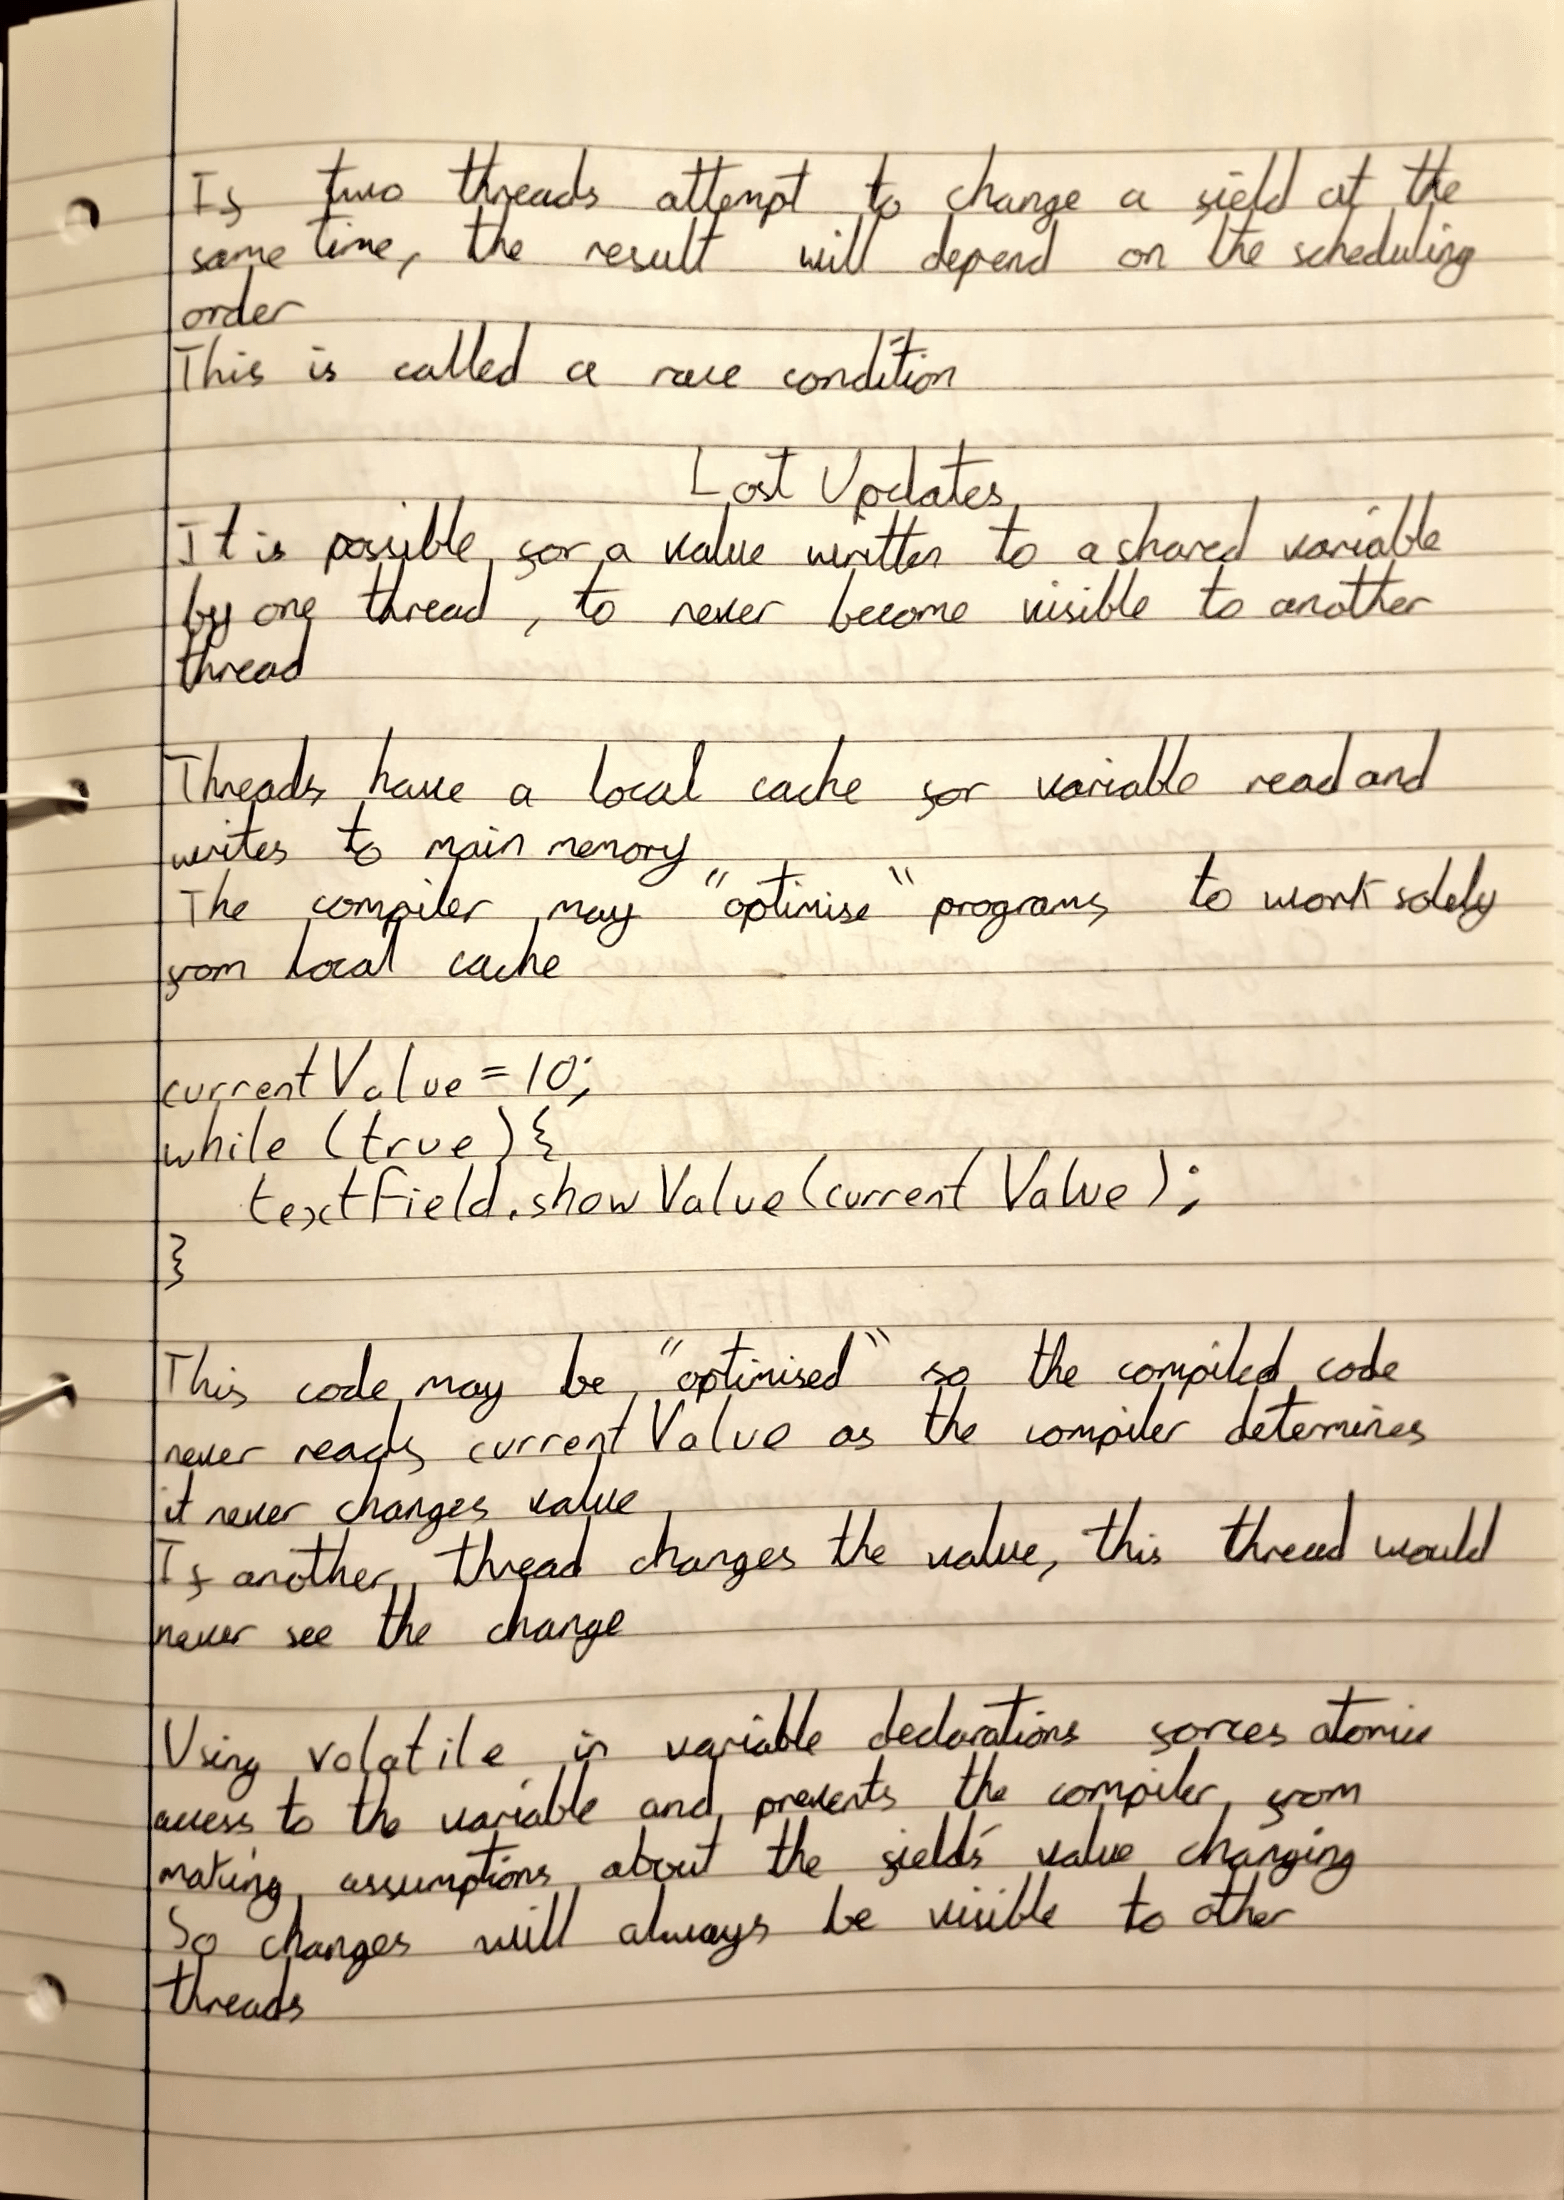 If two threads attempt to change a field at the
same time, the result will depend on the scheduling
order
This is called a race condition
Lost Updates
It is possible for a value written to a shared variable
by one thread, to never become visible to another
thread
Threads have a local cache for variable read and
writes to main memory
The compiler may "optimise" programs to work solely
from local cache
currentValue = 10;
while (true) {
textField.showValue(currentValue);
}
This code may be "optimised" so the compiled code
never reads currentValue as the compiler determines
it never changes value
If another thread changes the value, this thread would
never see the change
Using volatile in variable declarations forces atomic
access to the variable and prevents the compiler from
making assumptions about the field's value changing
So changes will always be visible to other
threads